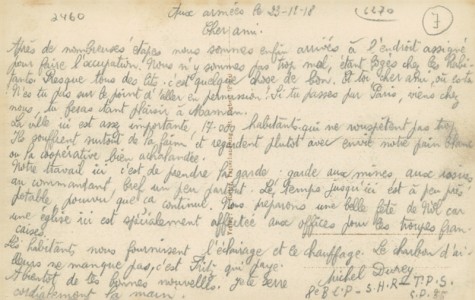 3460
Aux armées le 23-12-18
6270
7
Cher ami.
Après de nombreuses étapes nous sommes enfin arrivés à l'endroit assigné
pour faire l'occupation. Nous n'y sommes pas trop mal, étant logés chez les habi-
tants. Presque tous des lits: c'est quelque chose de bon. Et toi cher ami, où es-tu
N'es tu pas sur le point d'aller en permission? Si tu passes par Paris, viens chez
nous, tu feras tant plaisir à Maman.
La ville ici est assez importante, 17.000 habitants qui ne rouspètent pas trop
Ils souffrent surtout de la faim, et regardent plutôt avec envie notre pain blanc
ou la coopérative bien achalandée.
Notre travail ici c'est de prendre la garde: garde aux mines, aux usines,
au commandant, bref un peu partout. Le temps jusqu'ici est à peu près
potable, pourvu que ça continue. Nous préparons une belle fête de Noël car
une église ici est spécialement affectée aux offices pour les troupes fran-
çaises.
Les habitants nous fournissent l'éclairage et le chauffage. Le charbon d'ai-
lleurs ne manque pas, c'est Fritz qui paye.
A bientôt de tes bonnes nouvelles. Je te serre
cordialement la main.
Michel Durey
8e B.C.P - S.H.R - T.P.S.
S.P. 85